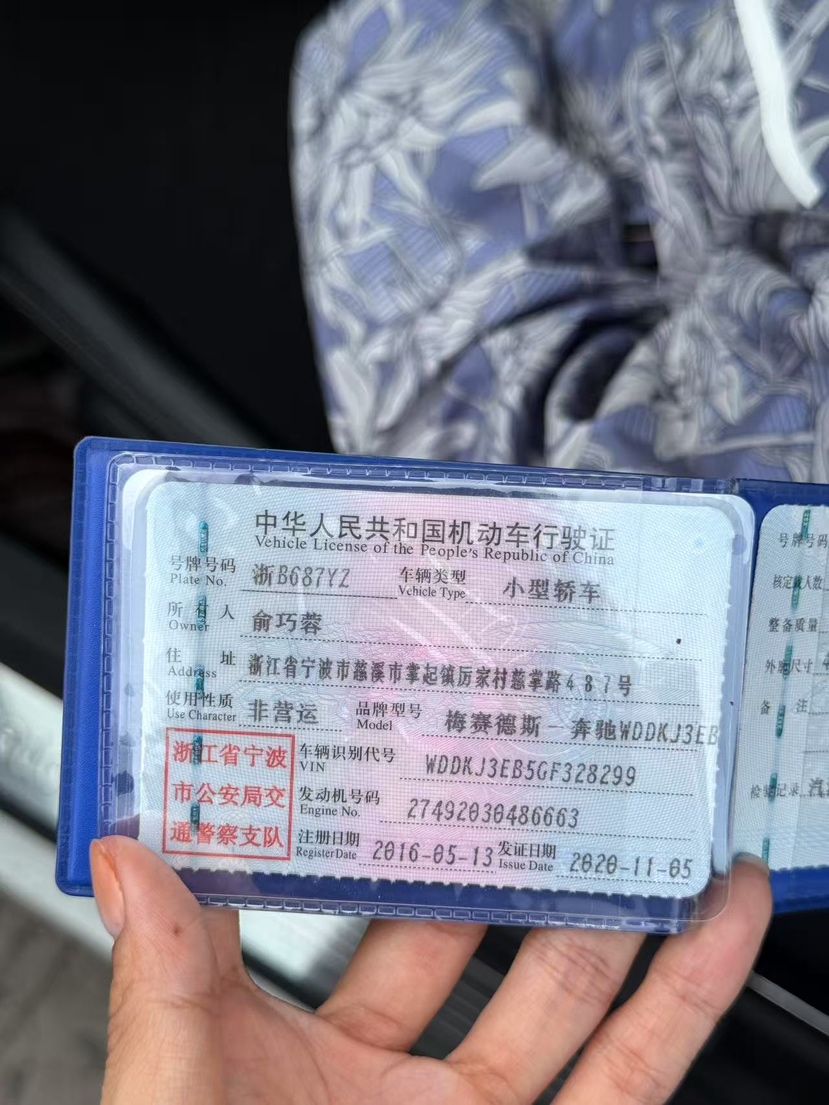 中华人民共和国机动车行驶证
Vehicle License of the People's Republic of China
号牌号码 浙B687YZ 车辆类型 小型轿车
Plate No. Vehicle Type
所有人 俞巧蓉
Owner
住址 浙江省宁波市慈溪市掌起镇厉家村慈掌路487号
Address
使用性质 非营运 品牌型号 梅赛德斯-奔驰WDDKJ3EB
Use Character Model
浙江省宁波
市公安局交
通警察支队
车辆识别代号 WDDKJ3EB5GF328299
VIN
发动机号码 27492030486663
Engine No.
注册日期 2016-05-13 发证日期 2020-11-05
Register Date Issue Date
号牌号码
核定载人数
整备质量
外廓尺寸
备注
检验记录